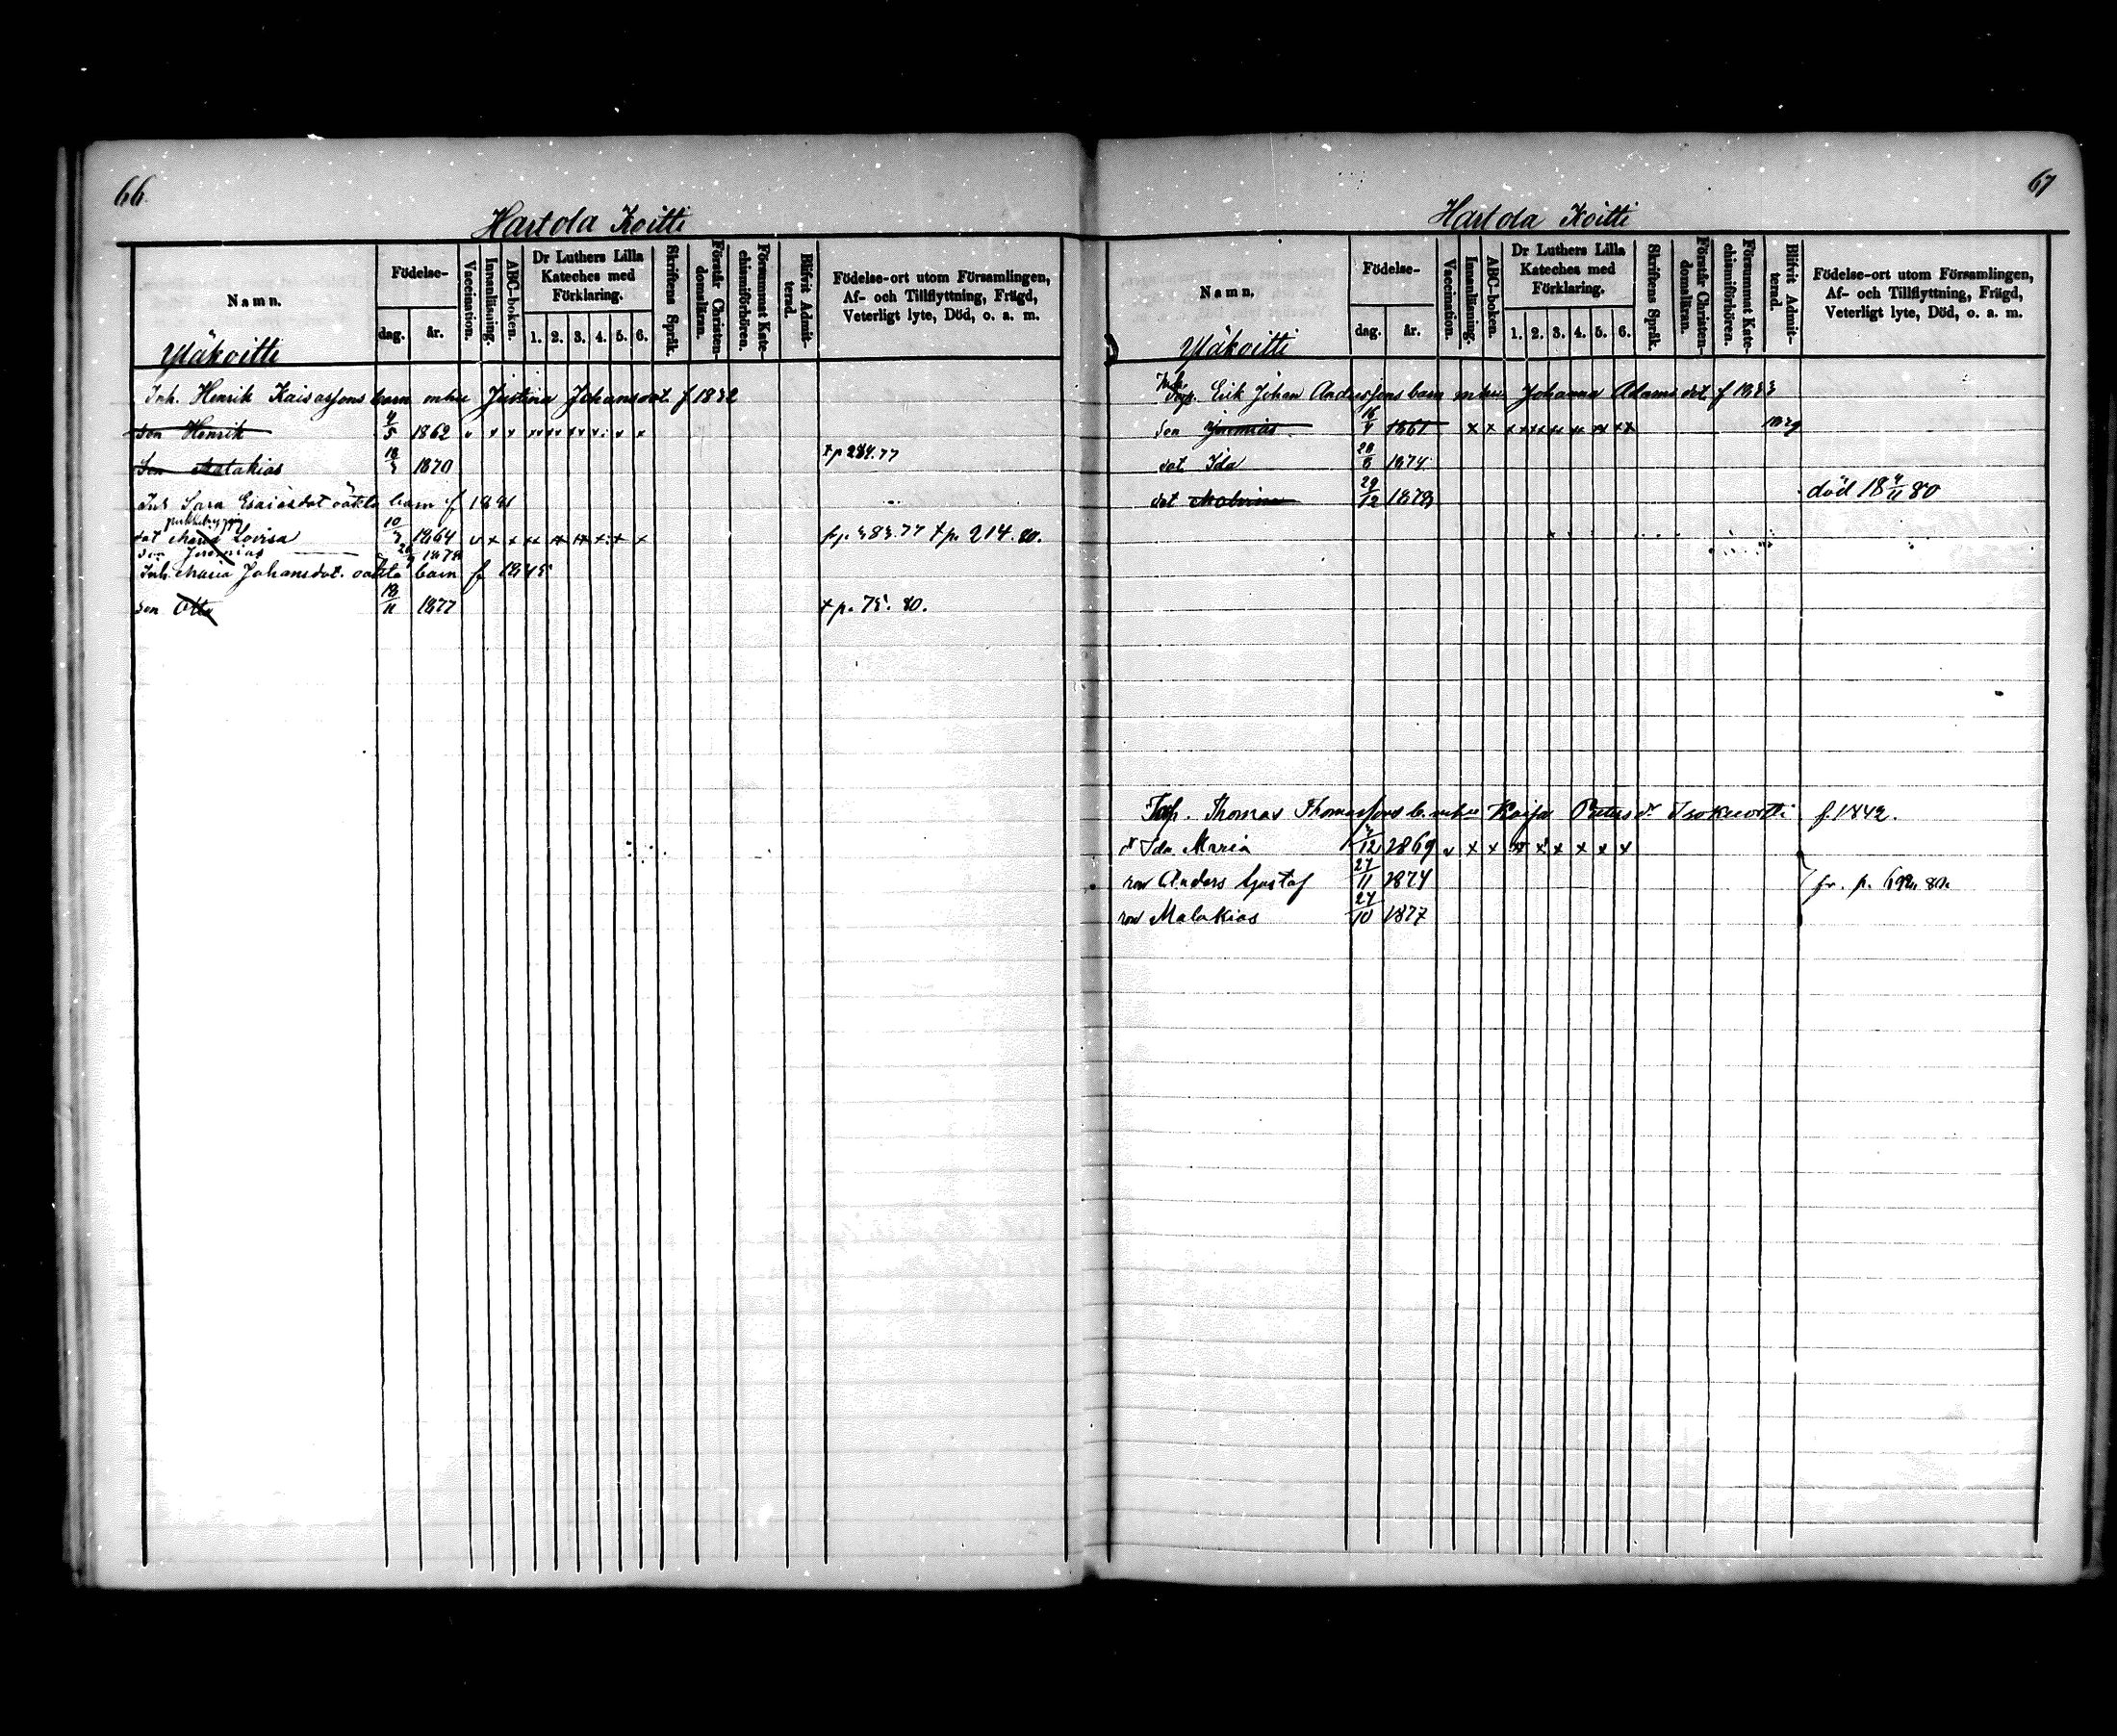 66
Hartola Koitti
Namn.
Födelse-
dag.
år.
Vaccination.
Innanläsning.
ABC-boken.
Dr Luthers Lilla
Kateches med
Förklaring.
1. 2. 3. 4. 5. 6.
Skriftens Språk.
Förstår Christen-
domsläran.
Försummat Kate-
chismiförhören.
Blifvit Admit-
terad.
Födelse-ort utom Församlingen,
Af- och Tillflyttning, Frägd,
Veterligt lyte, Död, o. a. m.
Yläkoitti
Inh. Henrik barn m hu Justina Johansdot. f 1832
son Henrik 4/5 1862 v x x x x x x x x x x x
Son 1870
Inh Sara Esaiasdot oäkta barn f
dot Maria Lovisa 10/7 1864 v x x x x x x x x 214. 80.
son Jeremias 1878
Inh. Maria Johansdot. oäkta barn f 1845
son Otto 18/11 1877 x p. 75. 80.
67
Hartola Koitti
Namn.
Födelse-
dag.
år.
Vaccination.
Innanläsning.
ABC-boken.
Dr Luthers Lilla
Kateches med
Förklaring.
1. 2. 3. 4. 5. 6.
Skriftens Språk.
Förstår Christen-
domsläran.
Försummat Kate-
chismiförhören.
Blifvit Admit-
terad.
Födelse-ort utom Församlingen,
Af- och Tillflyttning, Frägd,
Veterligt lyte, Död, o. a. m.
Yläkoitti
Inh.
Erik Johan Anderssons barn m hu Johanna Adamsdot. f
son Jeremias 1861 x x x x x x x x x x x x 1879
dot Ida 1874
dot 29/12 1878 död 18 4/11 80
Thomas Thomassons b. m hu Kaisa Petersdr f. 1842.
dr Ida Maria 1869 v x x x x x x x x
son Anders Gustaf 27/11 1874 fr. p. 80.
son Malakias 27/10 1877